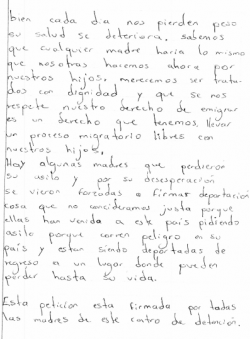 bien cada dia nos pierden peso
su salud se deteriora, sabemos
que cualquier madre haria lo mismo
que nosotras hacemos ahora por
nuestros hijos, merecemos ser trata-
dos con dignidad y que se nos
respete nuestro derecho de emigrar
es un derecho que tenemos, llevar
un proceso migratorio libres con
nuestros hijos.
Hay algunas madres que perdieron
su asilo y por su desesperación
se vieron forzadas a firmar deportación
cosa que no consideramos justa porque
ellas han venido a este pais pidiendo
asilo porque corren peligro en su
pais y estan siendo deportadas de
regreso a un lugar donde pueden
perder hasta su vida.
Esta peticion esta firmada por todas
las madres de este centro de detención.